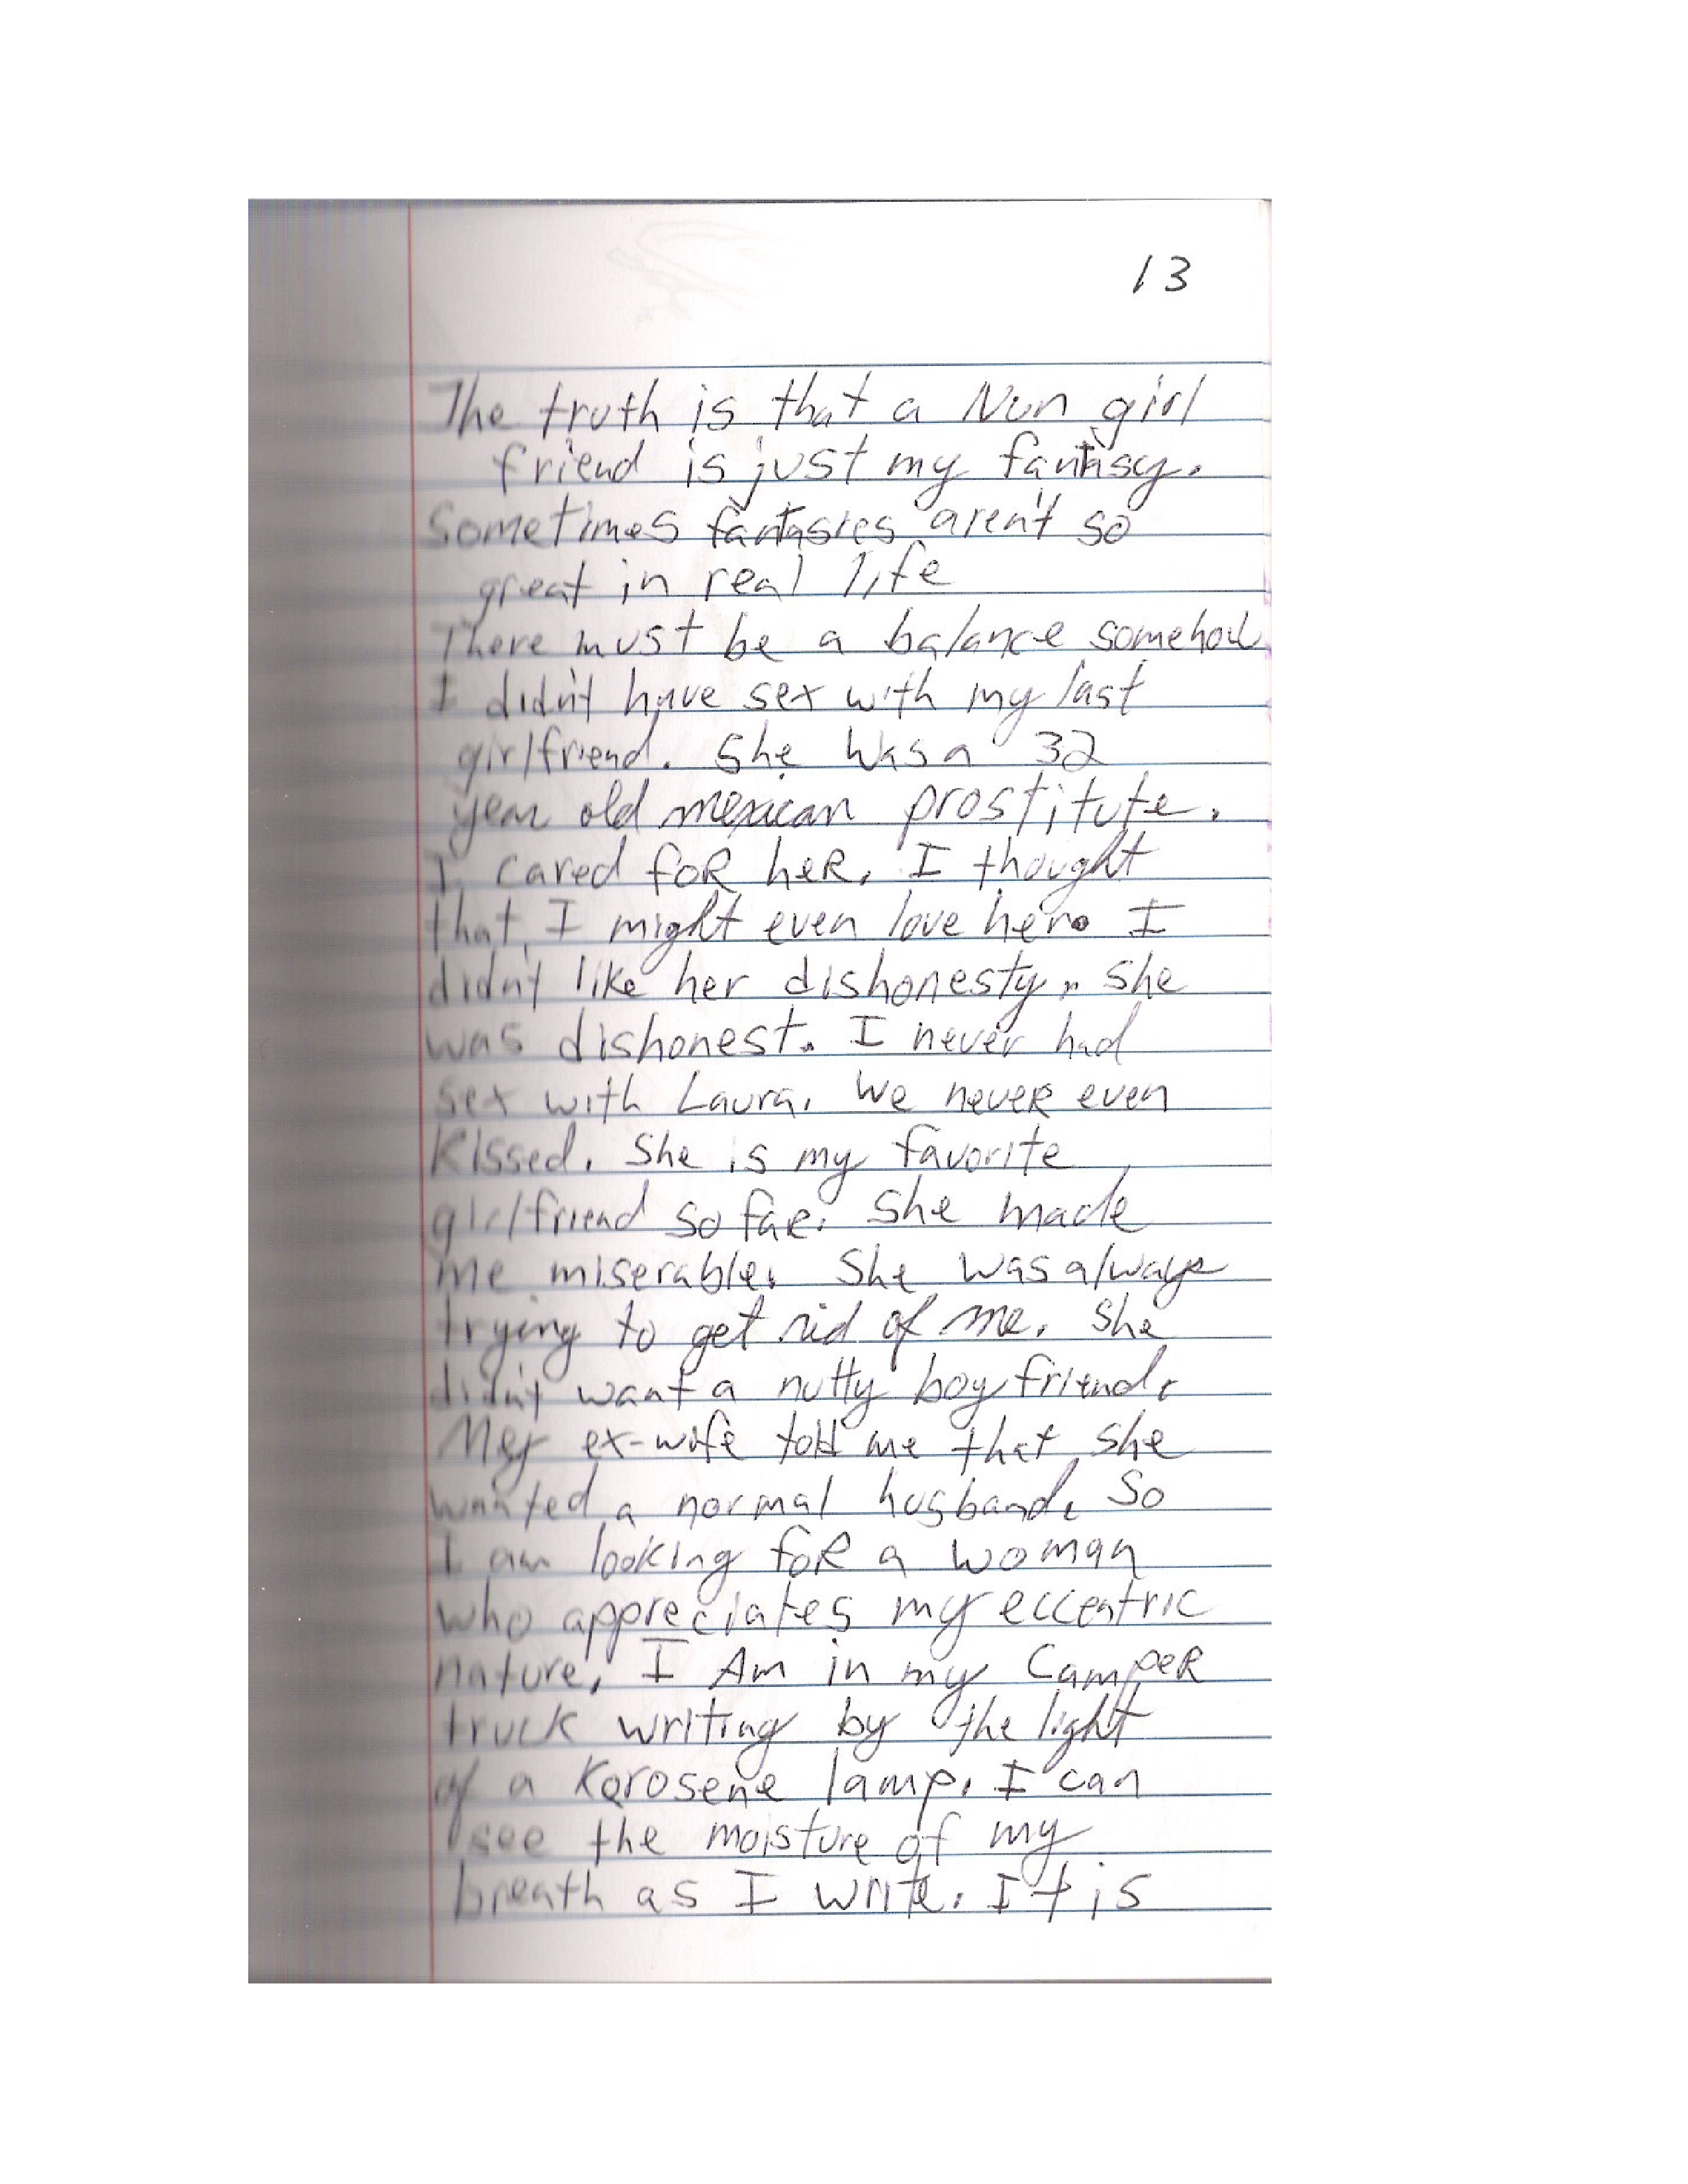 13
The truth is that a Nun girl
friend is just my fantasy.
Sometimes fantasies aren't so
great in real life
There must be a balance somehow
I didn't have sex with my last
girlfriend. She was a 32
year old mexican prostitute.
I cared foR heR. I thought
that I might even love her. I
didn't like her dishonesty. She
was dishonest. I never had
sex with Laura. We neveR even
Kissed. She is my favorite
girlfriend so faR. She made
me miserable. She was always
trying to get rid of me. She
didn't want a nutty boyfriend.
My ex-wife told me that she
wanted a normal husband. So
I am looking foR a woman
who appreciates my eccentric
nature. I Am in my CampeR
truck writing by the light
of a Kerosene lamp. I can
see the moisture of my
breath as I write. It is